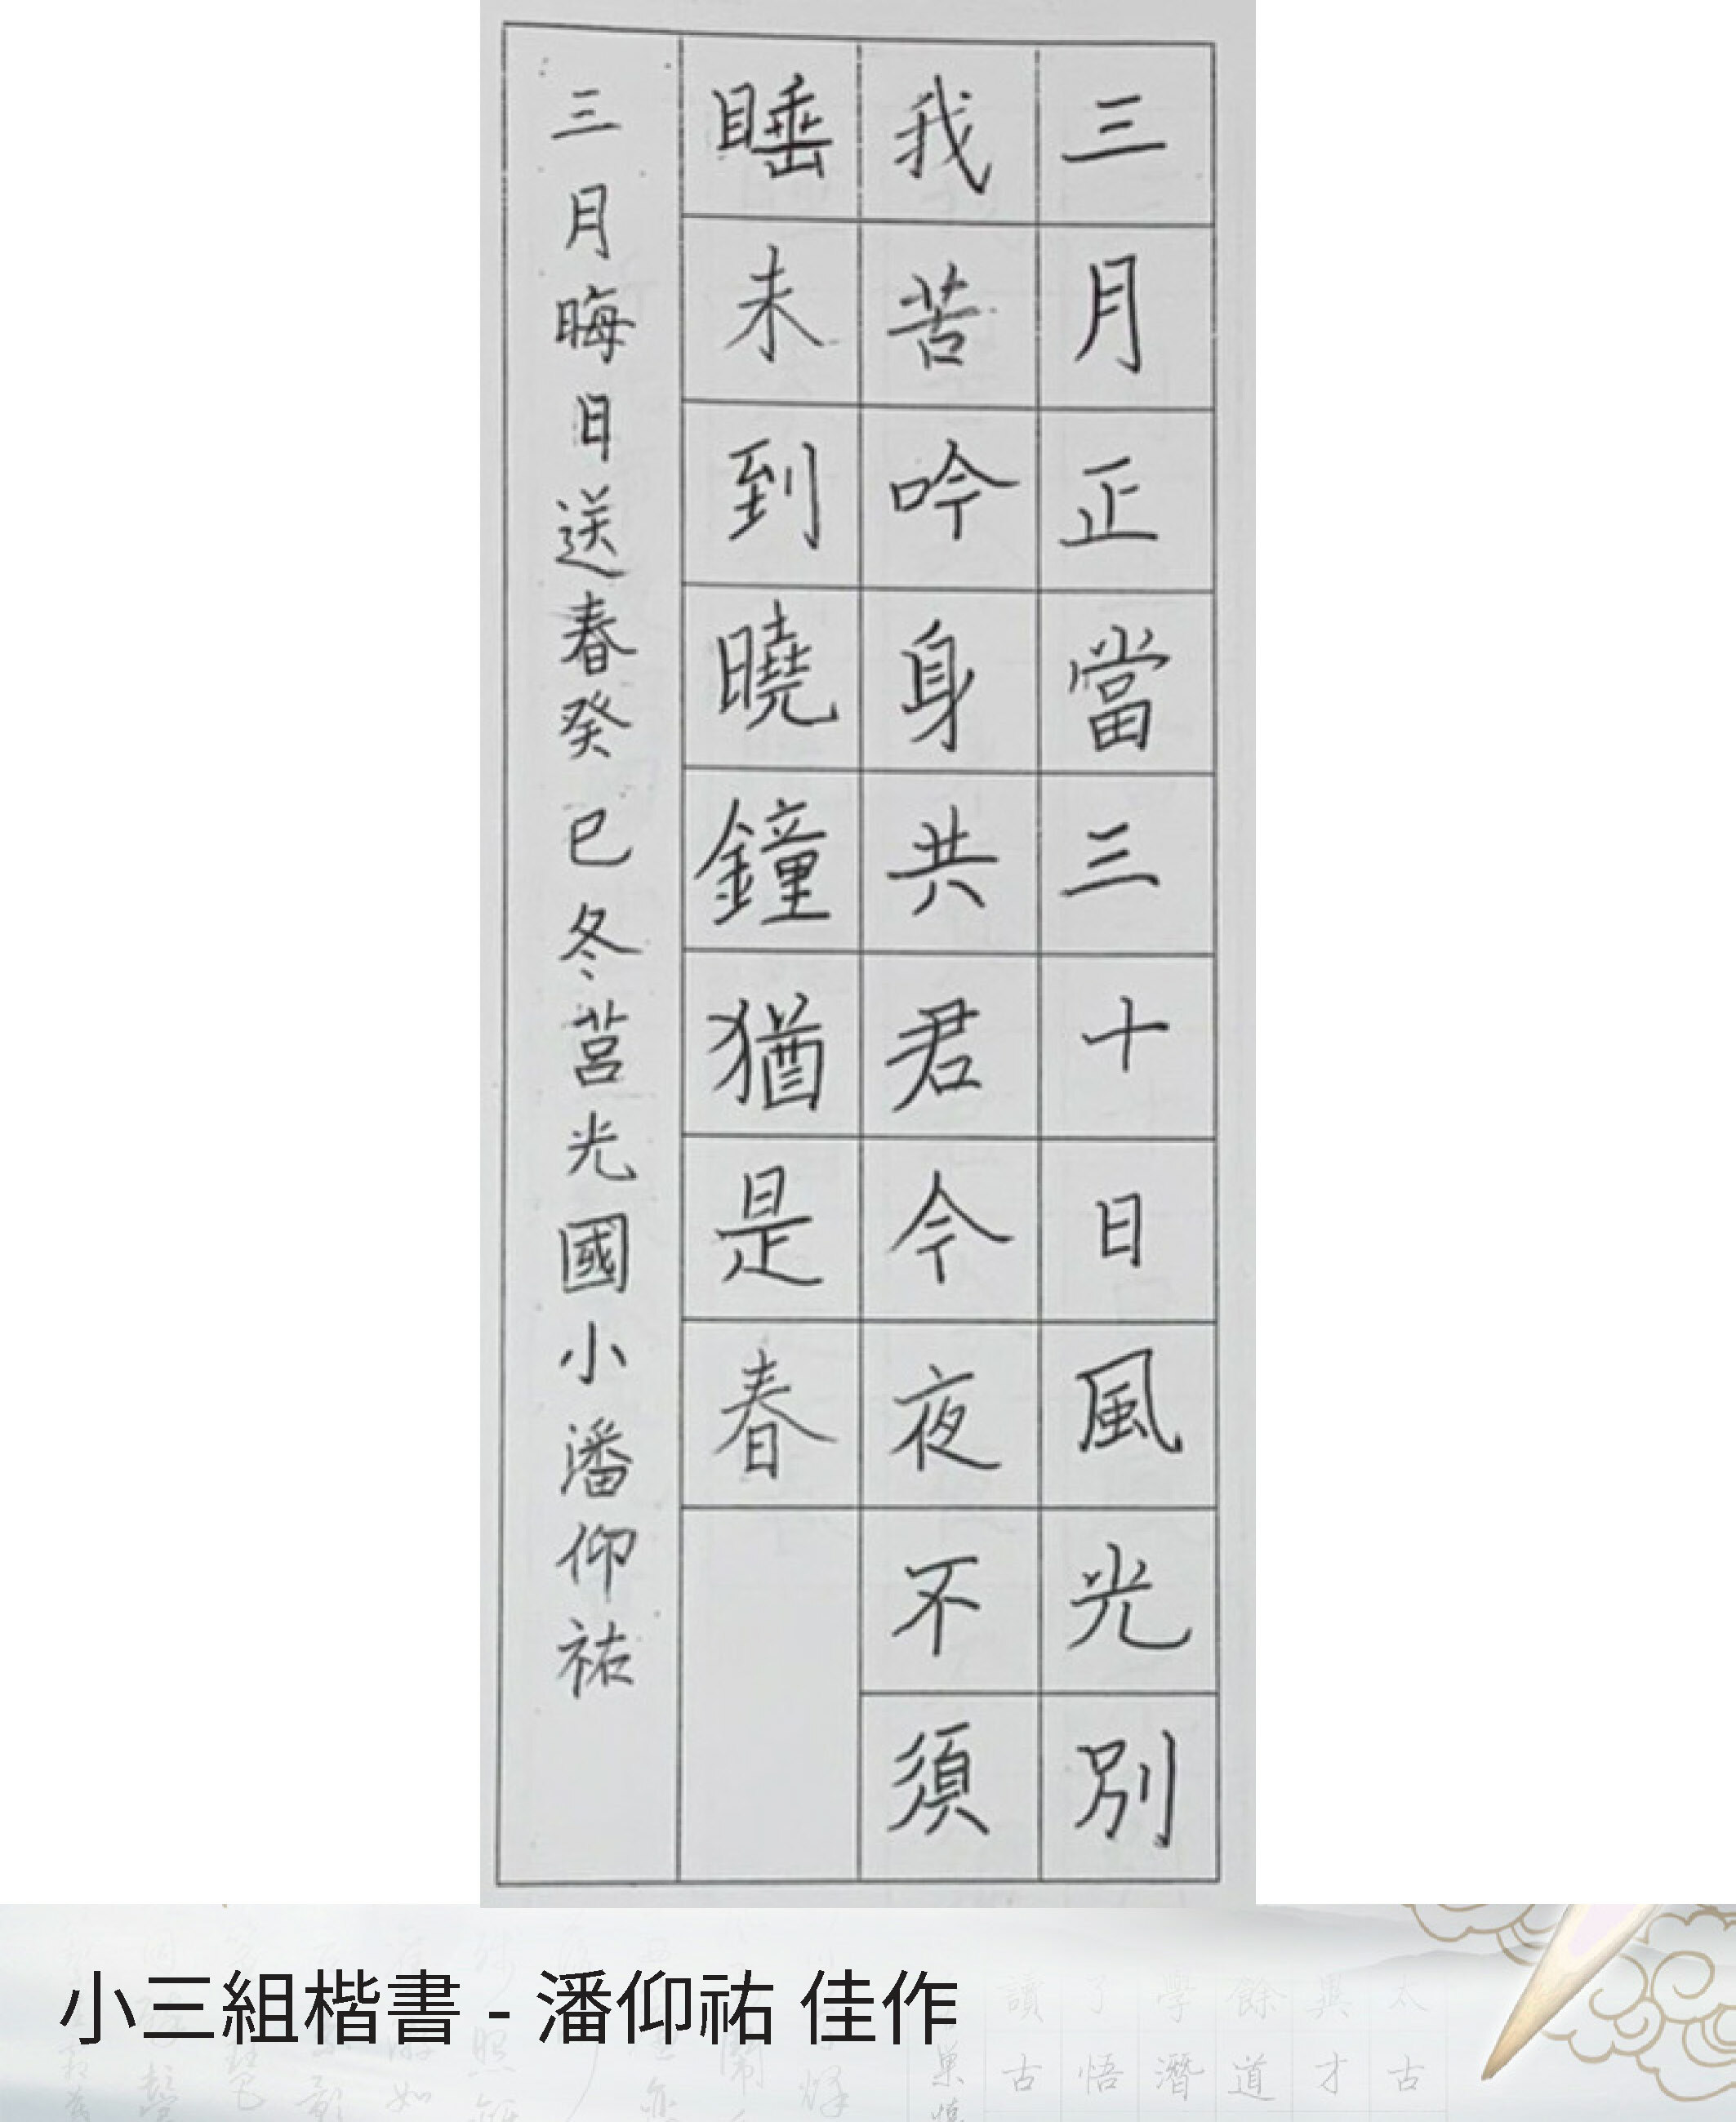 三月正當三十日風光別
我苦吟身共君今夜不須
睡未到曉鐘猶是春
三月晦日送春癸巳冬莒光國小潘仰祐
小三組楷書 - 潘仰祐 佳作
讀了學餘與太
古悟潛道才古